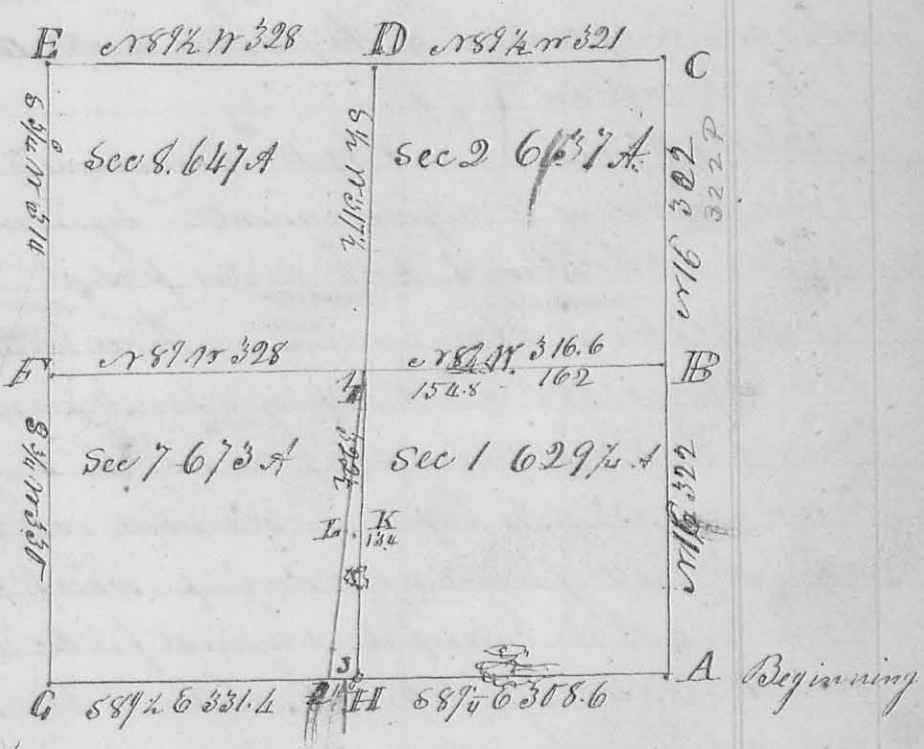 E N 89½ W 328 D N 89¼ W 321 C
S ¾ W 314
Sec 8. 647 A
Sec 2 637 A.
N 16 322
322 P
F N 89 W 328
N 82 W. 316.6
154.8 162
B
S ¾ W 330
Sec 7 673 A
I
Sec 1 629¼ A
L K
134
3
G S 89½ E 331.4 H S 89¼ E 308.6 A Beginning